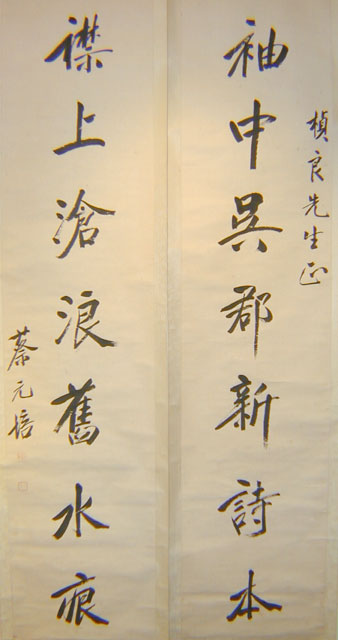 楨良先生正
袖中吳郡新詩本
襟上滄浪舊水痕
蔡元培